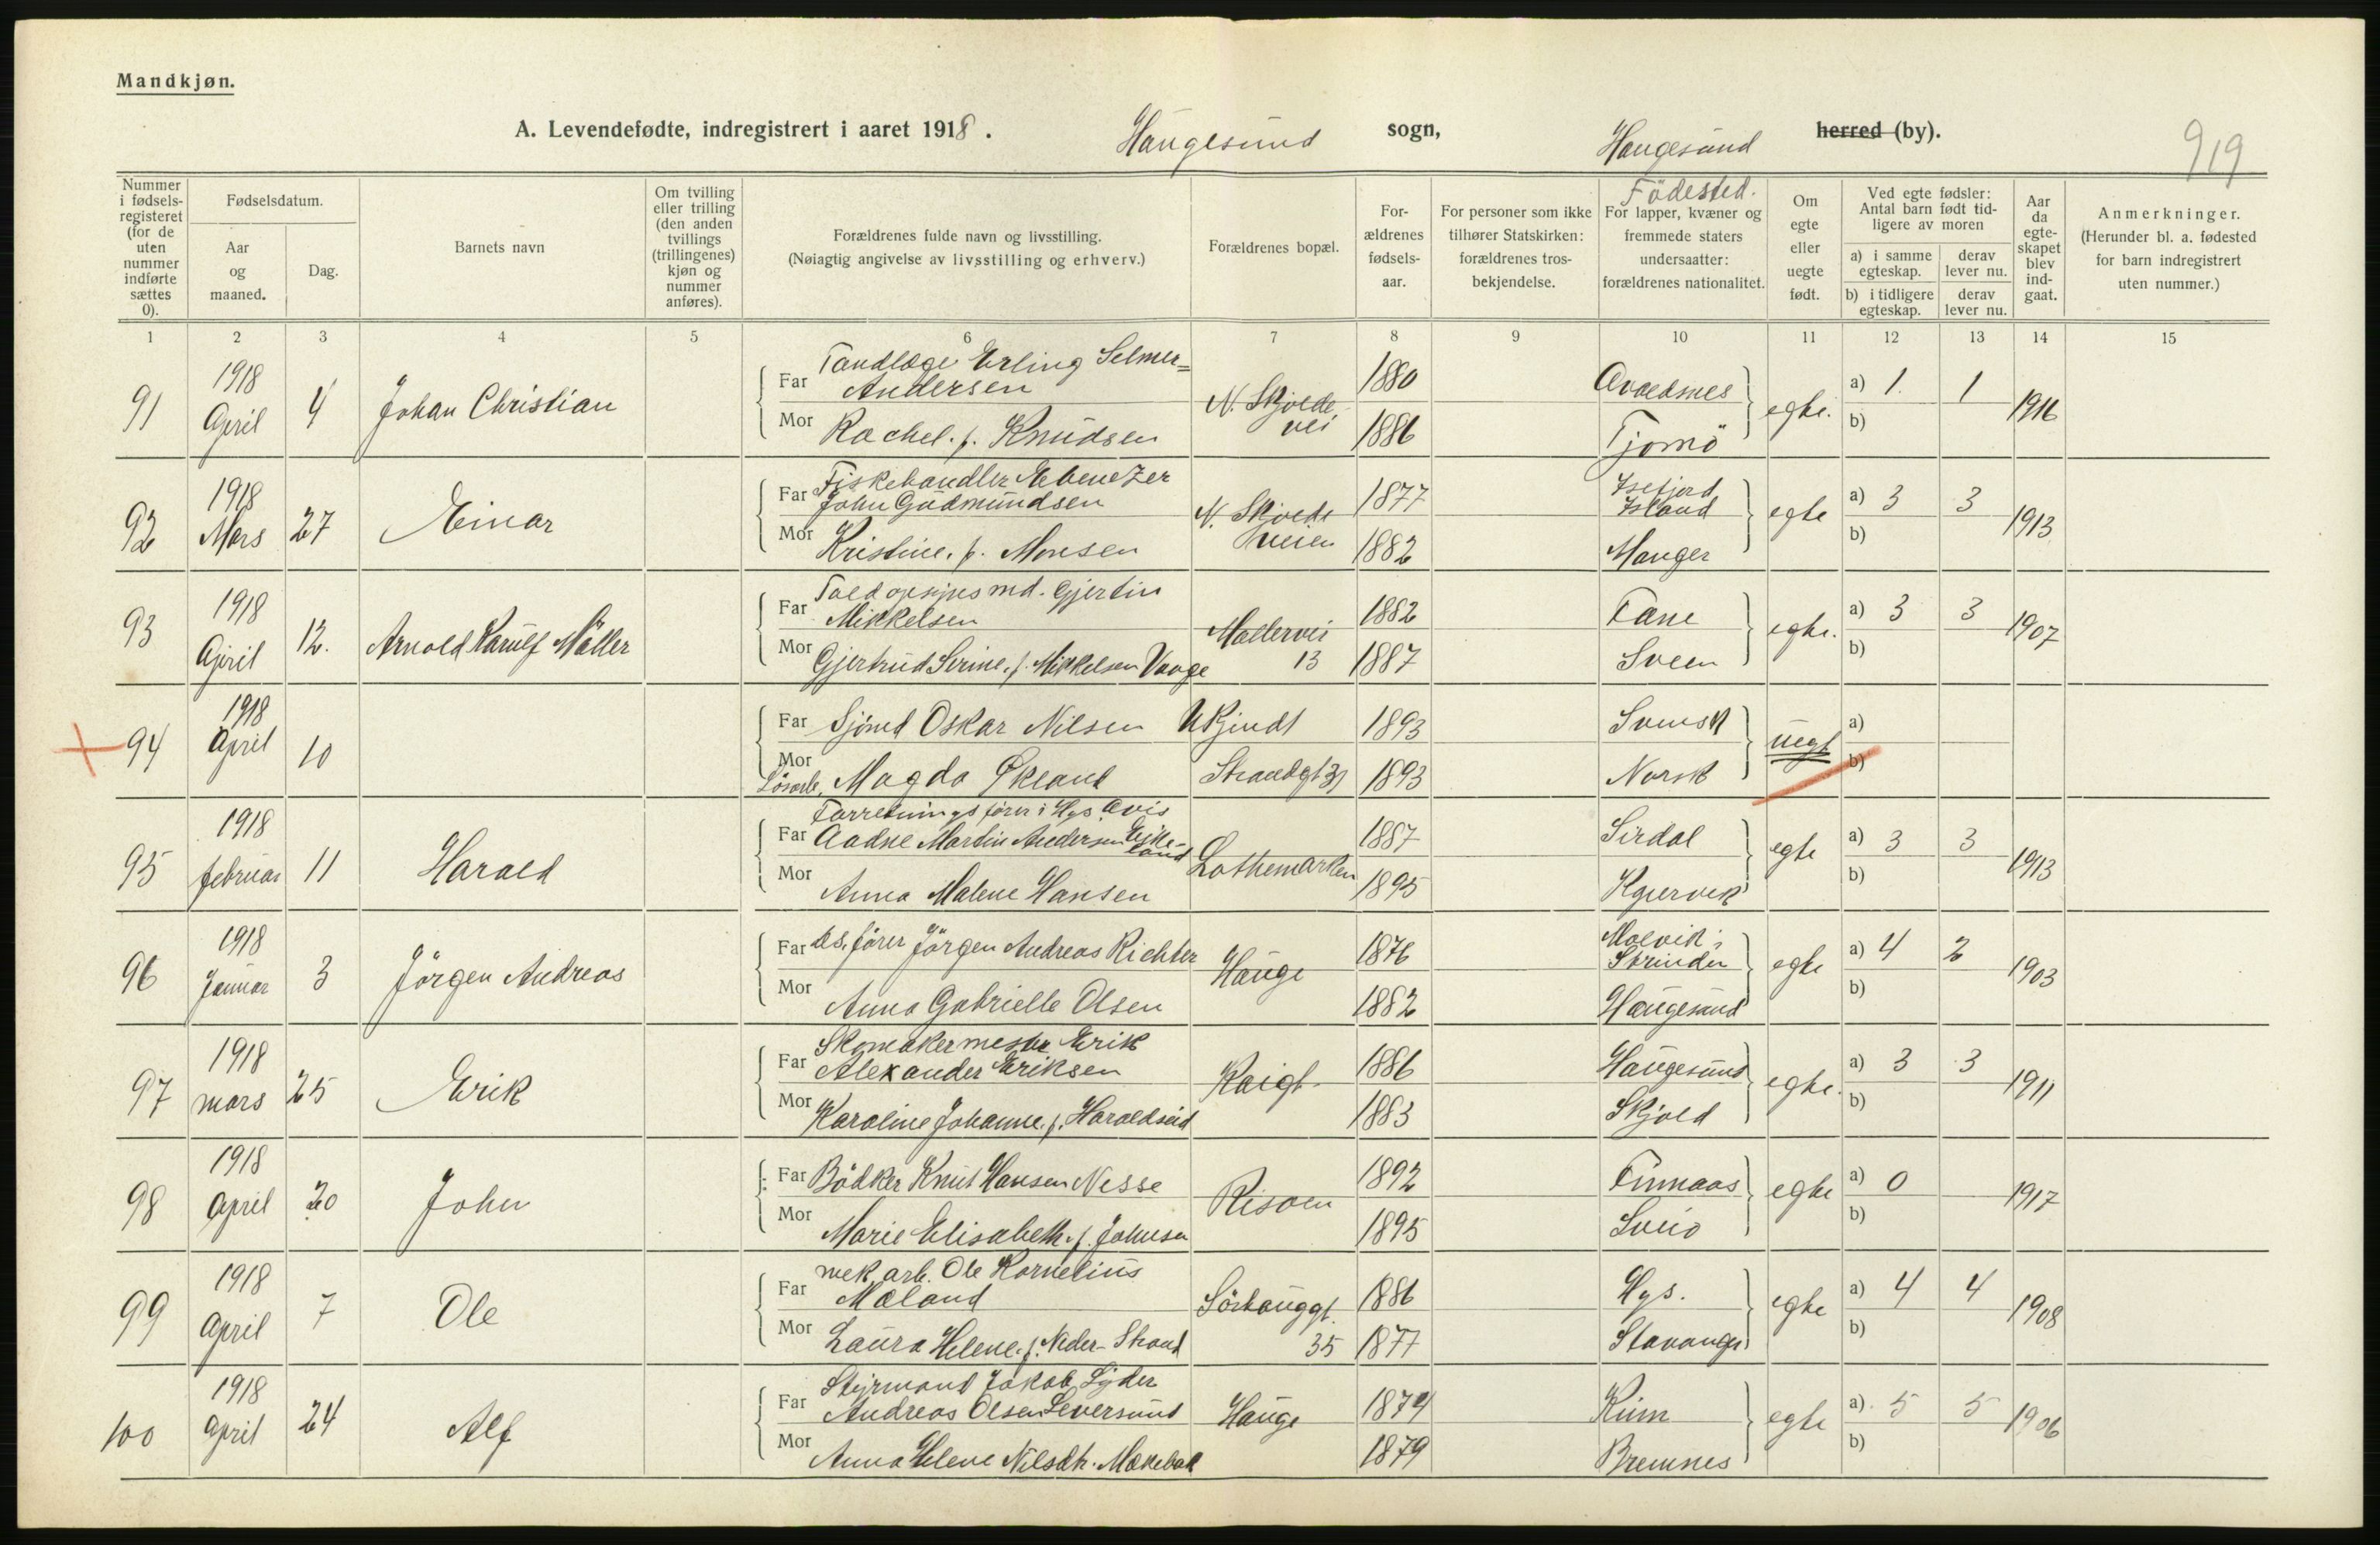 Mandkjøn.
A. Levendefødte, indregistrert i aaret 1918. Haugesund sogn, Haugesund herred (by).
919
Nummer i fødselsregisteret (for de uten nummer indførte sættes 0).
Fødselsdatum.
Aar og maaned.
Dag.
Barnets navn
Om tvilling eller trilling (den anden tvillings (trillingenes) kjøn og nummer anføres).
Forældrenes fulde navn og livsstilling.
(Nøiagtig angivelse av livsstilling og erhverv.)
Forældrenes bopæl.
Forældrenes fødselsaar.
For personer som ikke tilhører Statskirken: forældrenes trosbekjendelse.
Födested.
For lapper, kvæner og fremmede staters undersaatter: forældrenes nationalitet.
Om egte eller uegte født.
Ved egte fødsler: Antal barn født tidligere av moren
a) i samme egteskap. derav lever nu.
b) i tidligere egteskap. derav lever nu.
Aar da egteskapet blev indgaat.
Anmerkninger.
(Herunder bl. a. fødested for barn indregistrert uten nummer.)
1 2 3 4 5 6 7 8 9 10 11 12 13 14 15
91 1918 April 4 Johan Christian
Far Tandlæge Erling Selmer=
Andersen 1880 Avaldsnes
Mor Rachel f. Knudsen N. Skjolde vei 1886 Tjømö
egte. a) 1. 1 b) 1916
92 1918 Mars 27 Einar
Far Fiskehandler Ebenezer
John Gudmundsen 1877 Isefjord Island
Mor Kristine f. Monsen N. Skjolds veien 1882 Manger
egte a) 3 3 b) 1913
93 1918 April 12. Arnold Møller
Far Toldopsynsmd. Gjertin
Mikkelsen 1882 Fane
Mor Gjertrud Serine f. Mikkelsen Vaage Møllervei 13 1887 Sveen
egte. a) 3 3 b) 1907
94 1918 April 10
Far Sjömd Oskar Nilsen Ukjendt 1893 Svensk
Mor Magda Økland Strandgt 31 1893 Norsk
uegt a) b)
95 1918 februar 11 Harald
Forretningsförer i Hgs. Avis
Far Aadne Martin Andersen Eikeland 1887 Sirdal
Mor Anna Malene Hansen Lothemarken 1895
egte a) 3 3 b) 1913
96 1918 Januar 3 Jörgen Andreas
Far förer Jörgen Andreas Richter 1876 Malvik i Strinden
Mor Anna Gabrielle Olsen Hauge 1882 Haugesund
egte a) 4 2 b) 1903
97 1918 mars 25 Erik
Far Skomakermester Erik
Alexander Eriksen 1886 Haugesund
Mor Karoline Johanne f. Haraldseid Kaigt. 1883 Skjold
egte. a) 3 3 b) 1911
98 1918 April 20 John
Far Bödker Knut Hansen Nesse 1892 Finnaas
Mor Marie Elisabeth f. Johnsen Risöen 1895 Sveio
egte a) 0 b) 1917
99 1918 April 7 Ole
Far mek. arb. Ole Kornelius
Mæland 1886 Hgs.
Mor Laura Helene f. Neder-Strand Sörhauggt. 35 1877 Stavanger
egte a) 4 4 b) 1908
100 1918 April 24 Alf
Far Styrmand Jakob Lyder
Andreas Olsen Leversund 1874 Kinn
Mor Anna Helene Nilsdtr. Mækebak Hauge 1879 Bremnes
egte a) 5 5 b) 1906